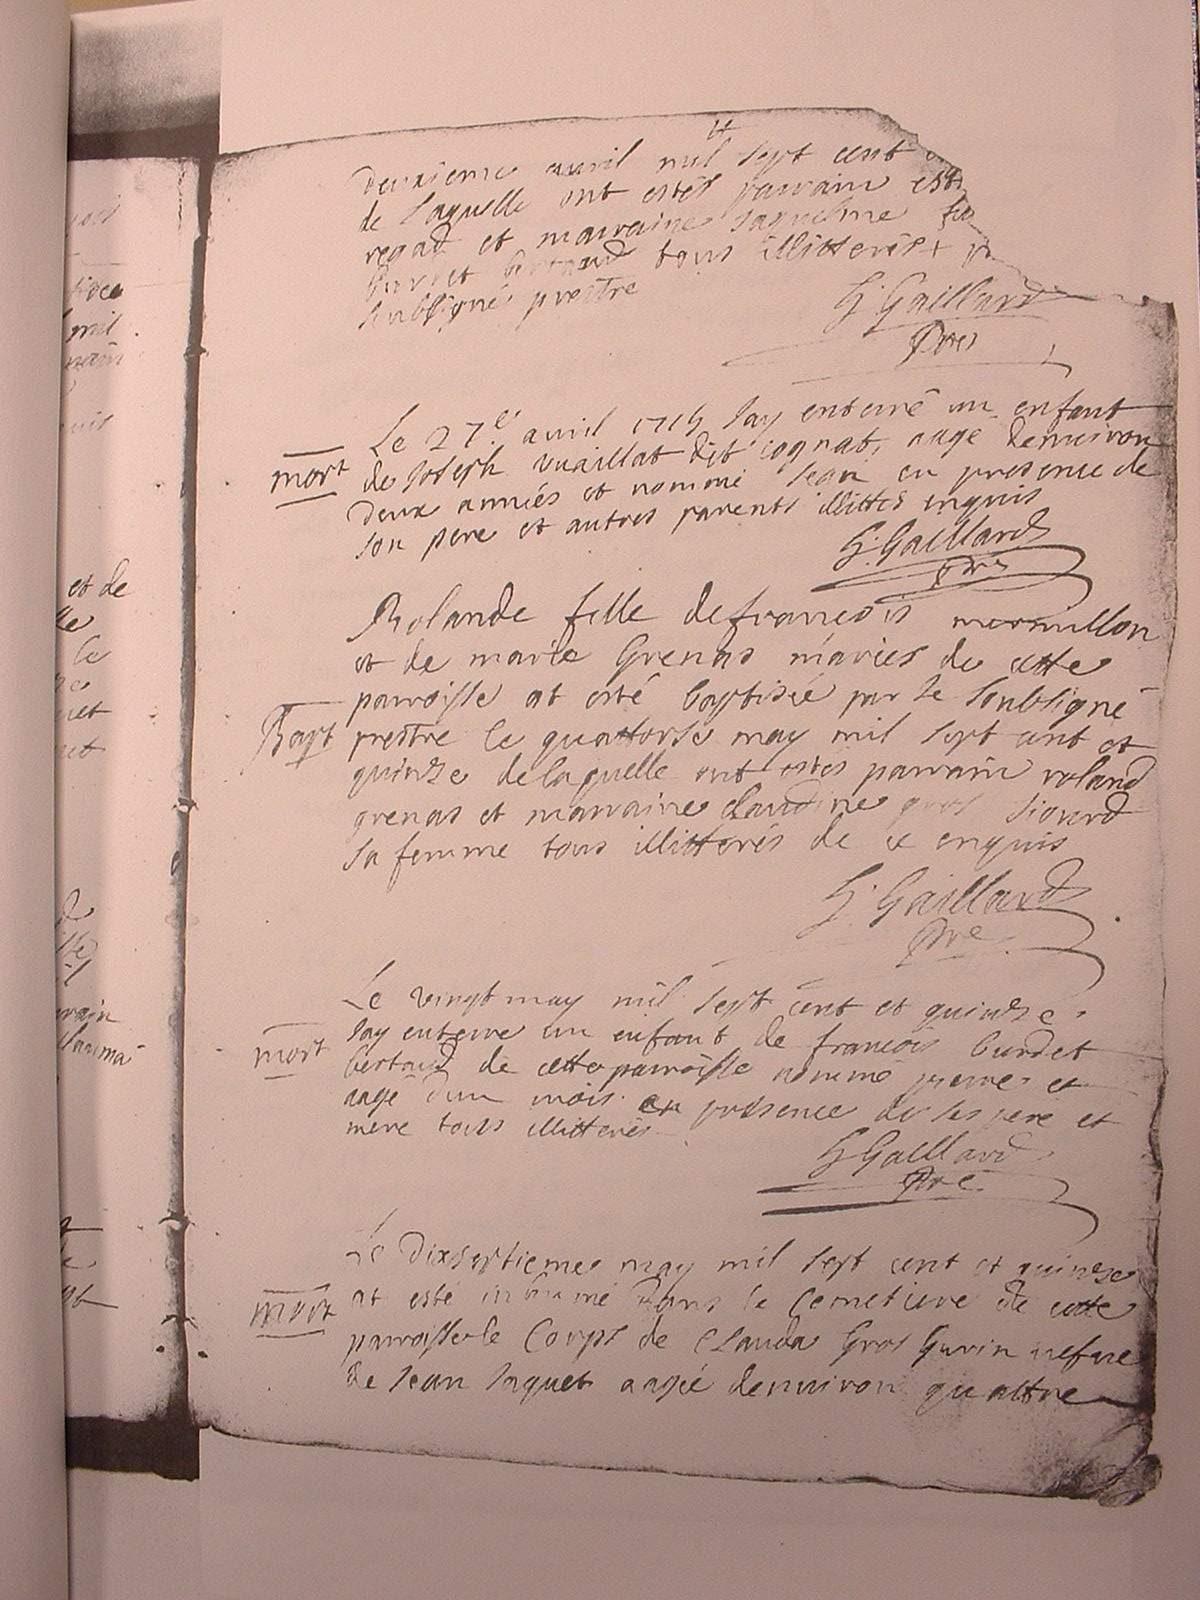 deuxieme avril mil sept cent
de laquelle ont estés parrain
regad et marraine Jaqueline
burdet bertaud tous illitterés
soubsigné prestre
G Gaillard
Pbre
mort
Le 27e avril 1715 Jay enterré un enfant
de Joseph vuaillat dit cognat, aagé denuiron
deux annéés et nommé Jean en presence de
son pere et autres parents illittes enquis
G. Gaillard
pre
Bapt
Rolande fille de francois mermillon
et de marie Grenas mariés de cette
parroisse at esté baptisée par Je soubsigné
prestre le quattorse may mil sept cent et
quinze de laquelle ont estés parrain roland
grenas et marraine claudine gros
sa femme tous illitterés de ce enquis
G. Gaillard
Pre
mort
Le vingt may mil sept cent et quinze
Jay enterre un enfant de francois burdet
bertaud de cette parroisse nommé pierre et
aagé dun mois en presence de ses pere et
mere touts illitterés
G Gaillard
Pre
mort
Le dixseptieme may mil sept cent et quinze
at esté inhumé dans le Cemetiere de cette
parroisse le Corps de Clauda Gros Gurin vefue
de Jean Jaquet aagée denuiron quattre
et de
le